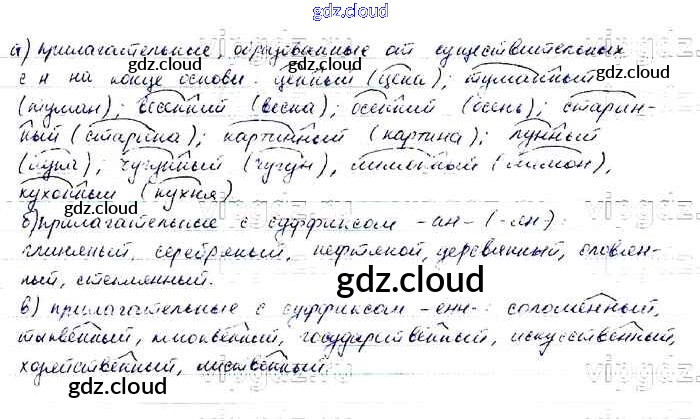 gdz.cloud
а) прилагательные, образованные от существительных
с н на конце основы: ценный (цена); туманный
gdz.cloud
(туман); весенний (весна); осенний (осень); старин-
ный (старина); картинный (картина); лунный
(луна); чугунный (чугун), лимонный (лимон),
кухонный (кухня)
gdz.cloud
gdz.cloud
б) прилагательные с суффиксом -ан- (-ян-):
глиняный, серебряный, нефтяной, деревянный, оловян-
ный, стеклянный.
gdz.cloud
в) прилагательные с суффиксом -енн-: соломенный,
тыквенный, клюквенный, государственный, искусственный,
хозяйственный, лиственный.
gdz.cloud
gdz.cloud